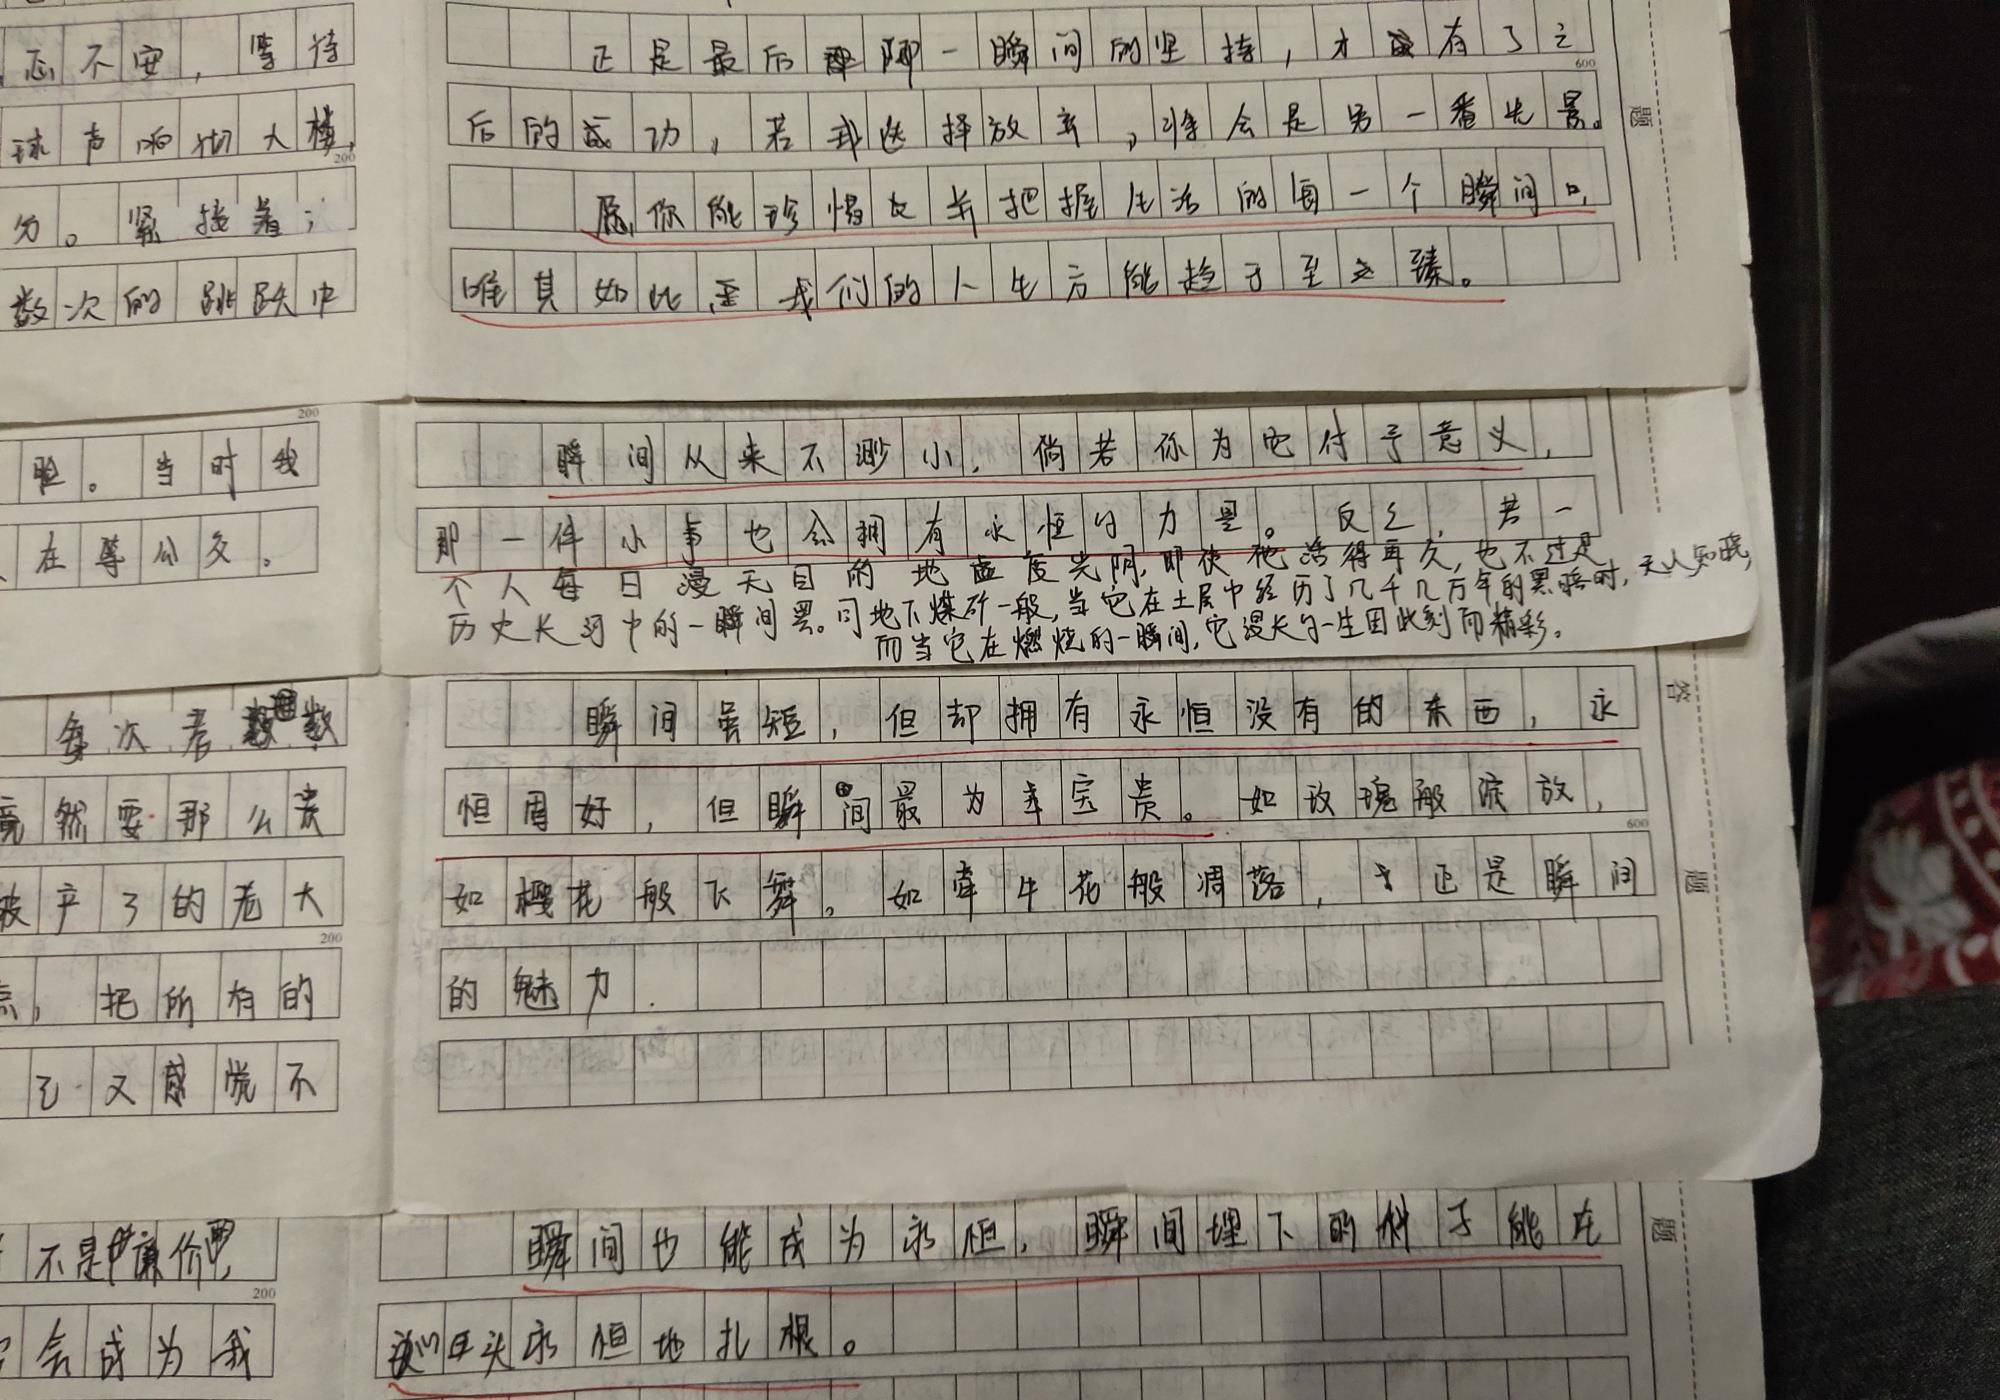 忐不安，等待
球声响彻大楼，
200
分。紧接着，
数次的跳跃中
正是最后那一瞬间的坚持，才有了之
600
后的成功，若我选择放弃，将会是另一番光景。
愿你能珍惜友并把握生活的每一个瞬间。
唯其如此，我们的人生方能趋于至臻。
题
200
脸。当时我
在等公交。
瞬间从来不渺小，倘若你为它付予意义，
那一件小事也会拥有永恒的力量。反之，若一
个人每日漫无目的地虚度光阴，即使他活得再久，也不过是
历史长河中的一瞬间罢。同地下煤矿一般，当它在土层中经历了几千几万年的黑暗时，无人知晓，
而当它在燃烧的一瞬间，它漫长的一生因此刻而精彩。
每次看数
竟然要那么贵
破产了的老大
200
，把所有的
己又感觉不
瞬间虽短，但却拥有永恒没有的东西，永
恒固好，但瞬间最为宝贵。如玫瑰般绽放，
600
如樱花般飞舞。如牵牛花般凋落，才正是瞬间
的魅力.
答
题
不是“廉价”，
200
会成为我
瞬间也能成为永恒，瞬间埋下的种子能在
心头永恒地扎根。
题